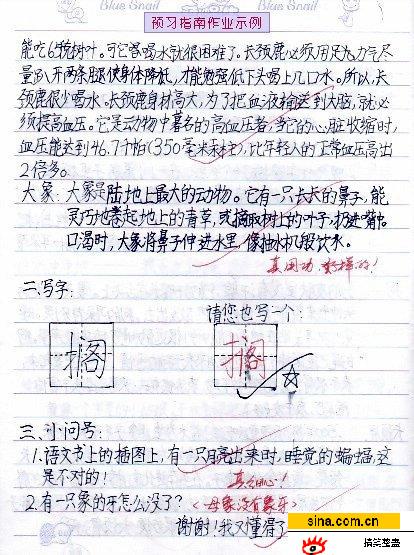 Blue Snail
预习指南作业示例
Blue Snail
能吃6顿树叶。可它喝水就很困难了。长颈鹿必须用足力气尽
量趴开两条腿使身体降低,才能勉强低下头喝上几口水。所以,长
颈鹿很少喝水。长颈鹿身材高大,为了把血液输送到大脑,就必
须提高血压。它是动物中著名的高血压者,当它的心脏收缩时,
血压能达到46.7千帕(350毫米汞柱),比年轻人的正常血压高出
2倍多。
大象:大象是陆地上最大的动物。它有一只长长的鼻子,能
灵巧地卷起地上的青草,或摘取树上的叶子,扔进嘴中。
口渴时,大象将鼻子伸进水里,像抽水机般饮水。
真用功,好样的!
二.写字:
请您也写一个:
搁
搁
三.小问号:
1.语文书上的插图上,有一只月亮出来时,睡觉的蝙蝠,这
是不对的!
真细心!
2.有一只象的牙怎么没了?(母象没有象牙)
谢谢!我又懂得了
sina.com.cn
搞笑整蛊